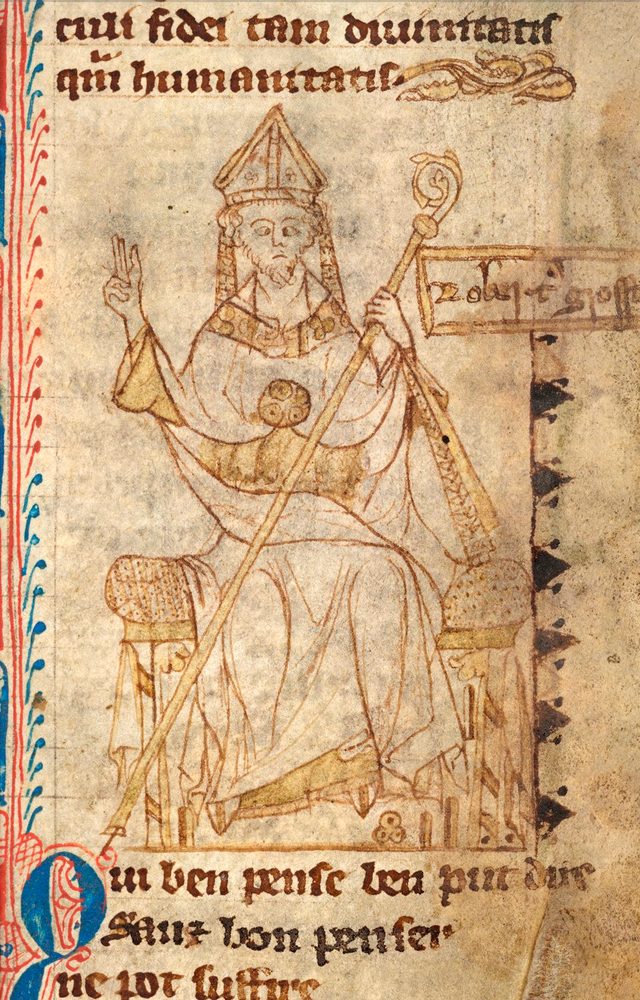 culi fidei tam diuinitatis
qm̄ humanitatis.
Robertꝰ gross
Qui ben pense ben put dire
Sanz bon penser
ne pot suffire